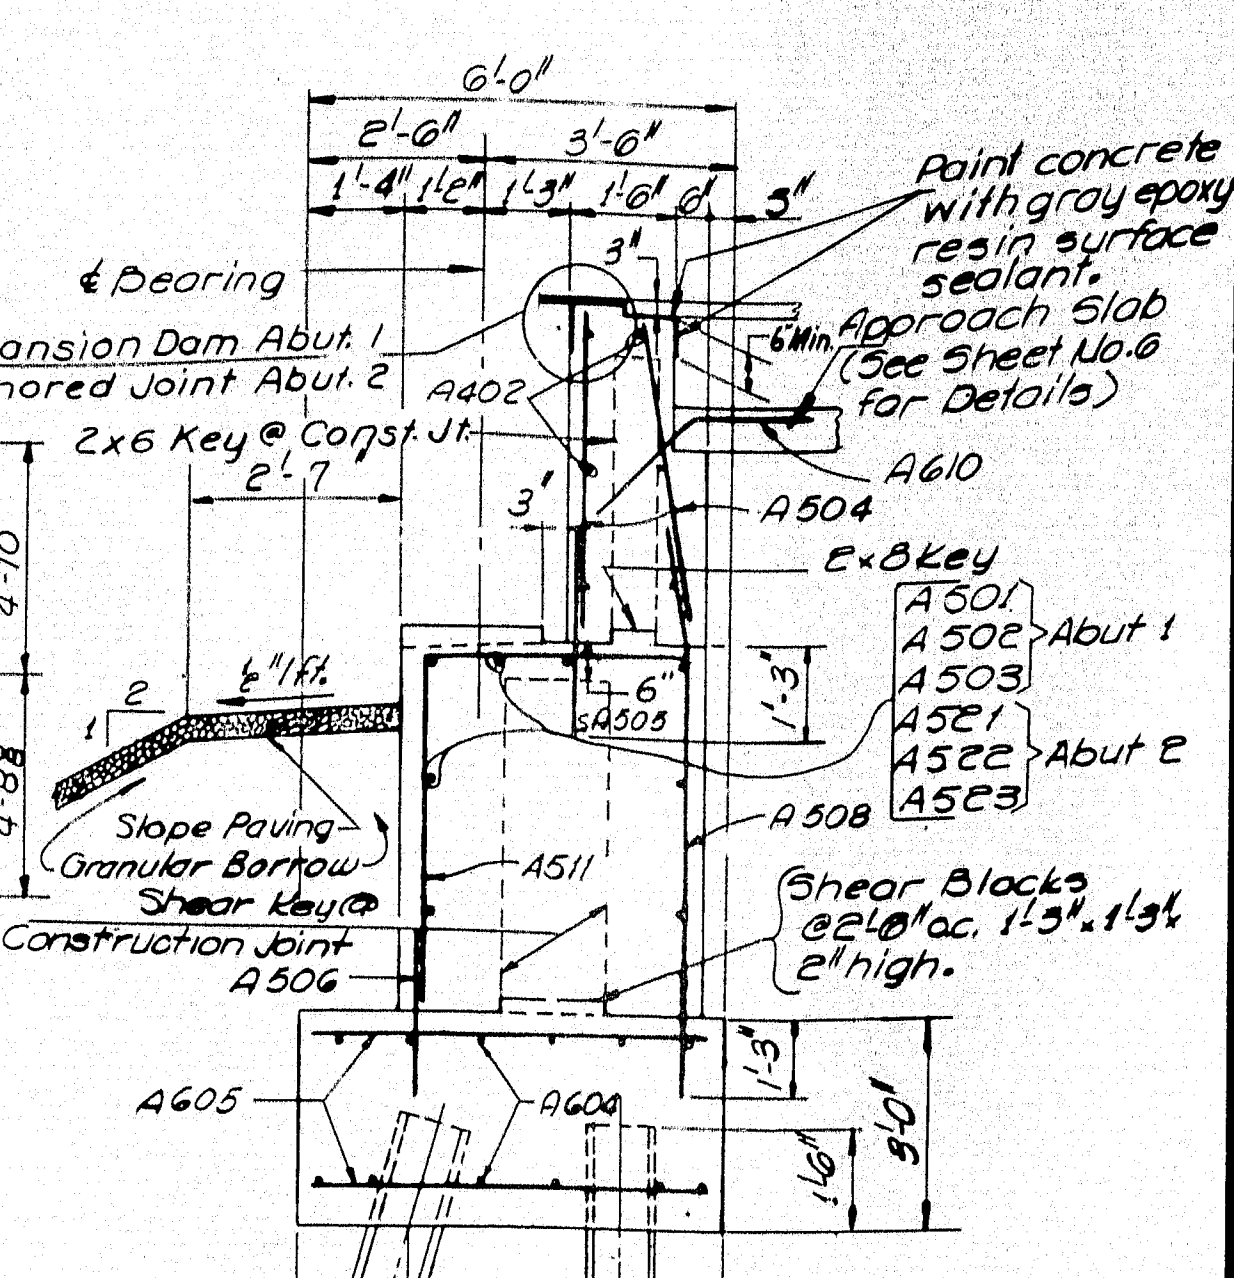 6'-0"
2'-6" 3'-6"
1'-4" 1'-2" 1'-3" 1'-6" 6" 3"
Paint concrete
with gray epoxy
resin surface
sealant.
3"
℄ Bearing
ansion Dam Abut. 1
nored Joint Abut. 2
6" Min.
Approach Slab
(See Sheet No.6
for Details)
A402
2x6 Key @ Const. Jt.
2'-7"
A610
3"
A504
4-10
2x8 Key
A501
A502
A503
Abut 1
A521
A522
A523
Abut 2
1'-3"
6"
A505
2
1
½"/ft.
4-8
A508
Slope Paving
Granular Borrow
A511
Shear Key @
Construction Joint
A506
Shear Blocks
@ 2'-8" oc. 1'-3" x 1'-3" x
2" high.
1'-3"
3'-0"
1'-6"
A605
A604